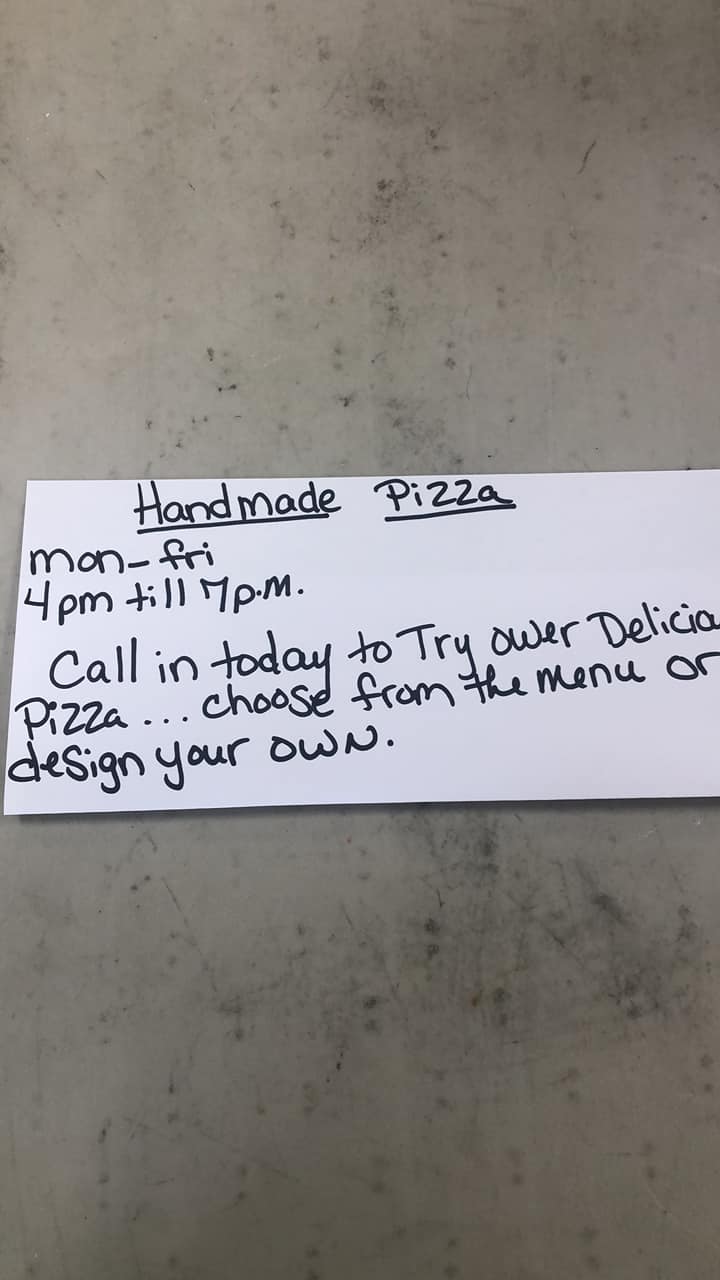 Handmade Pizza
mon-fri
4pm till 7p.m.
Call in today to Try ower Delicia
Pizza... choose from the menu or
design your own.